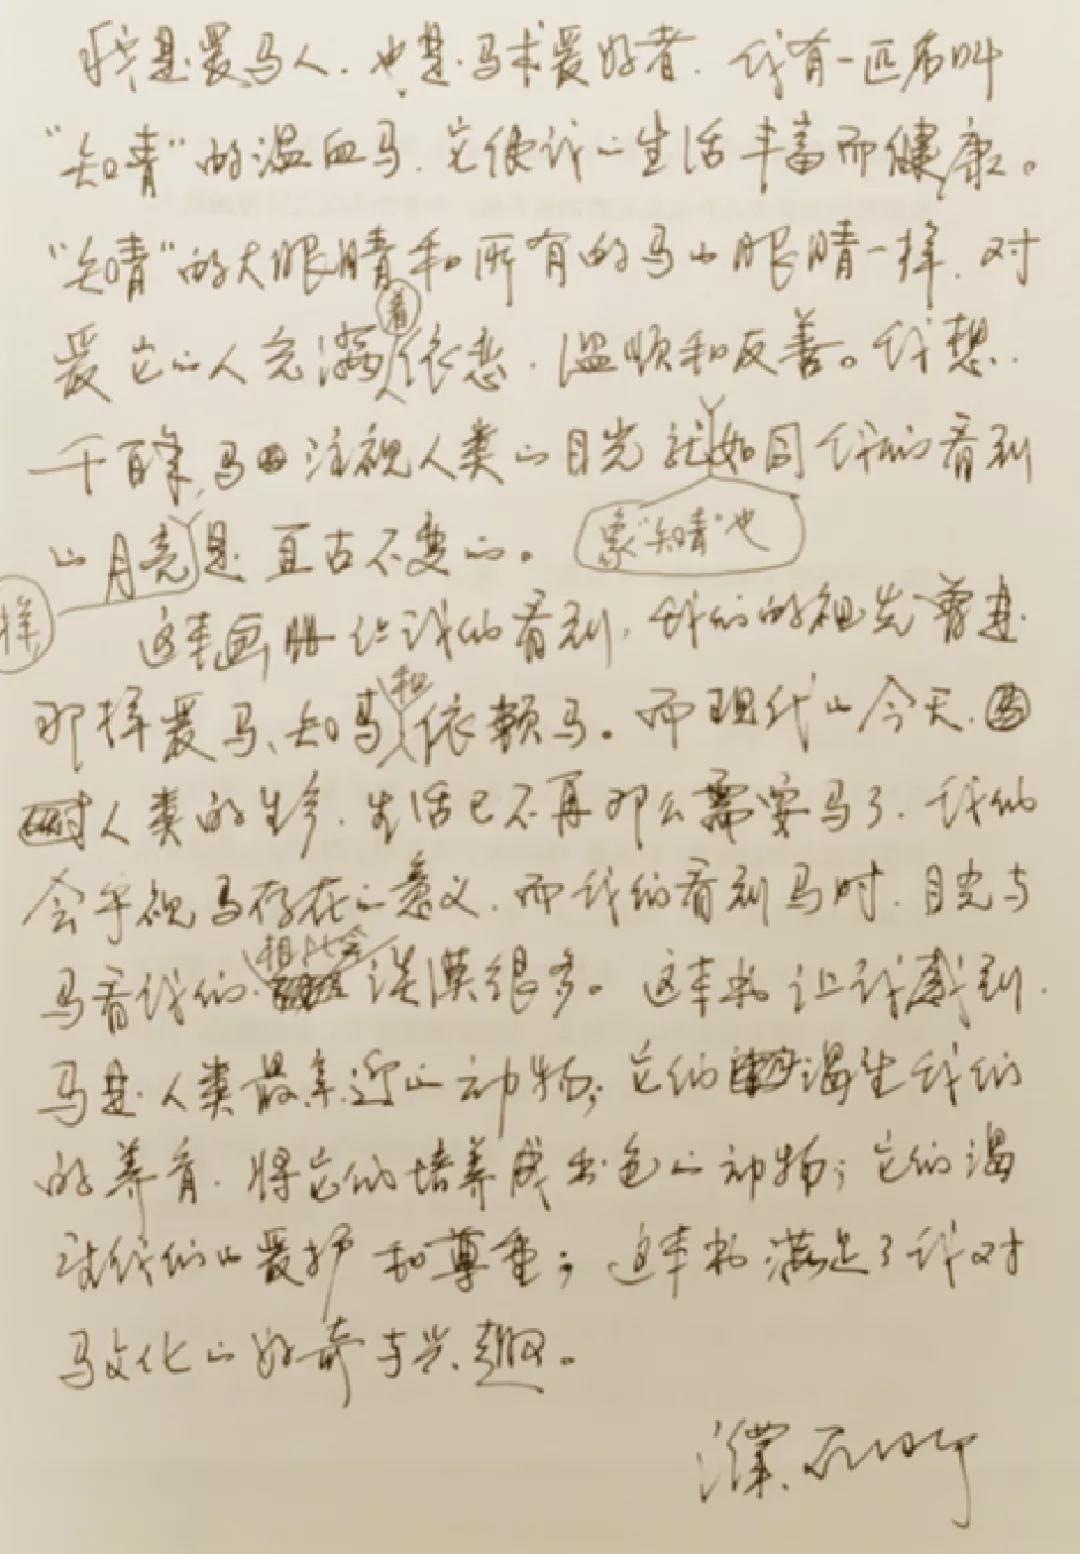 我是爱马人，也是马术爱好者，我有一匹名叫
“知青”的温血马，它使我的生活丰富而健康。
“知青”的大眼睛和所有的马的眼睛一样，对
爱它的人充满着依恋，温顺和友善。我想，
千百年，马注视人类的目光就象“知青”也如同我们看到
的月亮样是亘古不变的。
这本画册让我们看到，我们的祖先曾是
那样爱马、知马和依赖马。而现代的今天，
对人类的生命，生活已不再那么需要马了，我们
会平视马存在的意义，而我们看到马时，目光与
马看我们相比会淡漠很多。这本书让我感到，
马是人类最亲近的动物；它们渴望我们
的养育，将它们培养成出色的动物；它们渴
望我们的爱护和尊重；这本书满足了我对
马文化的好奇与兴趣。
濮存昕